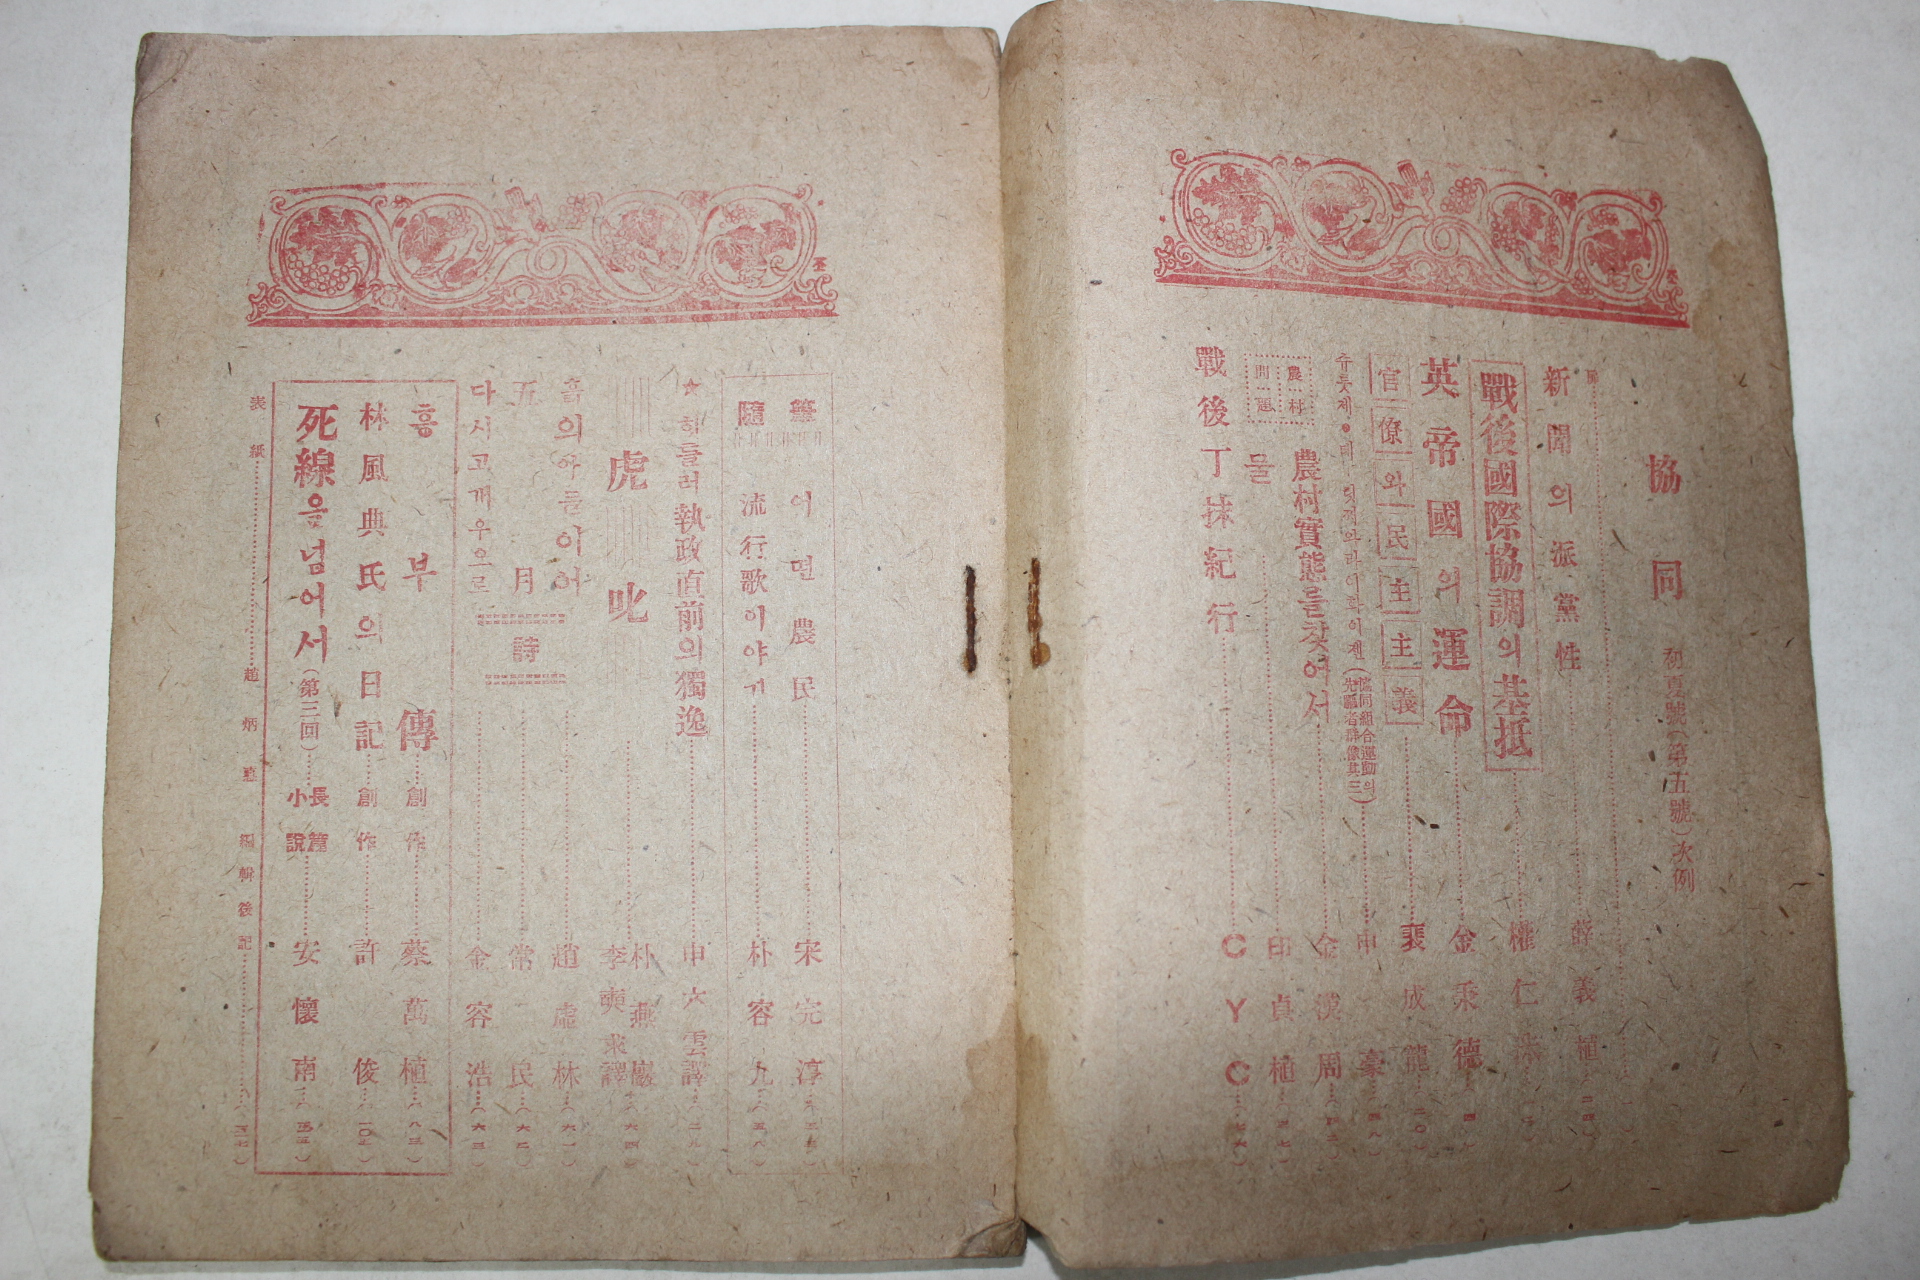 協同 初夏號(第五號)次例
新聞의派黨性 薛義植
戰後國際協調의基抵
英帝國의運命 金秉德
官僚와民主主義 裵成龍
(協同組合運動의先驅者群像其三) 申
農村問題
農村實態를찾여서 金漢周
물 印貞植
戰後丁抹紀行 CYC
隨筆
어떤農民 宋完淳
流行歌이야기 朴容九
★히틀러執政直前의獨逸 申六雲譯
虎叱 朴燕巖 李奭求譯 (六四)
詩
흙의아들이어 趙虛林 (六一)
五月 常民 (六二)
다시고개우으로 金容浩 (六三)
흥부傳 創作 蔡萬植 (八三)
林風典氏의日記 創作 許俊
死線을넘어서(第三回) 長篇小說 安懷南
表紙 趙炳悳 編輯後記